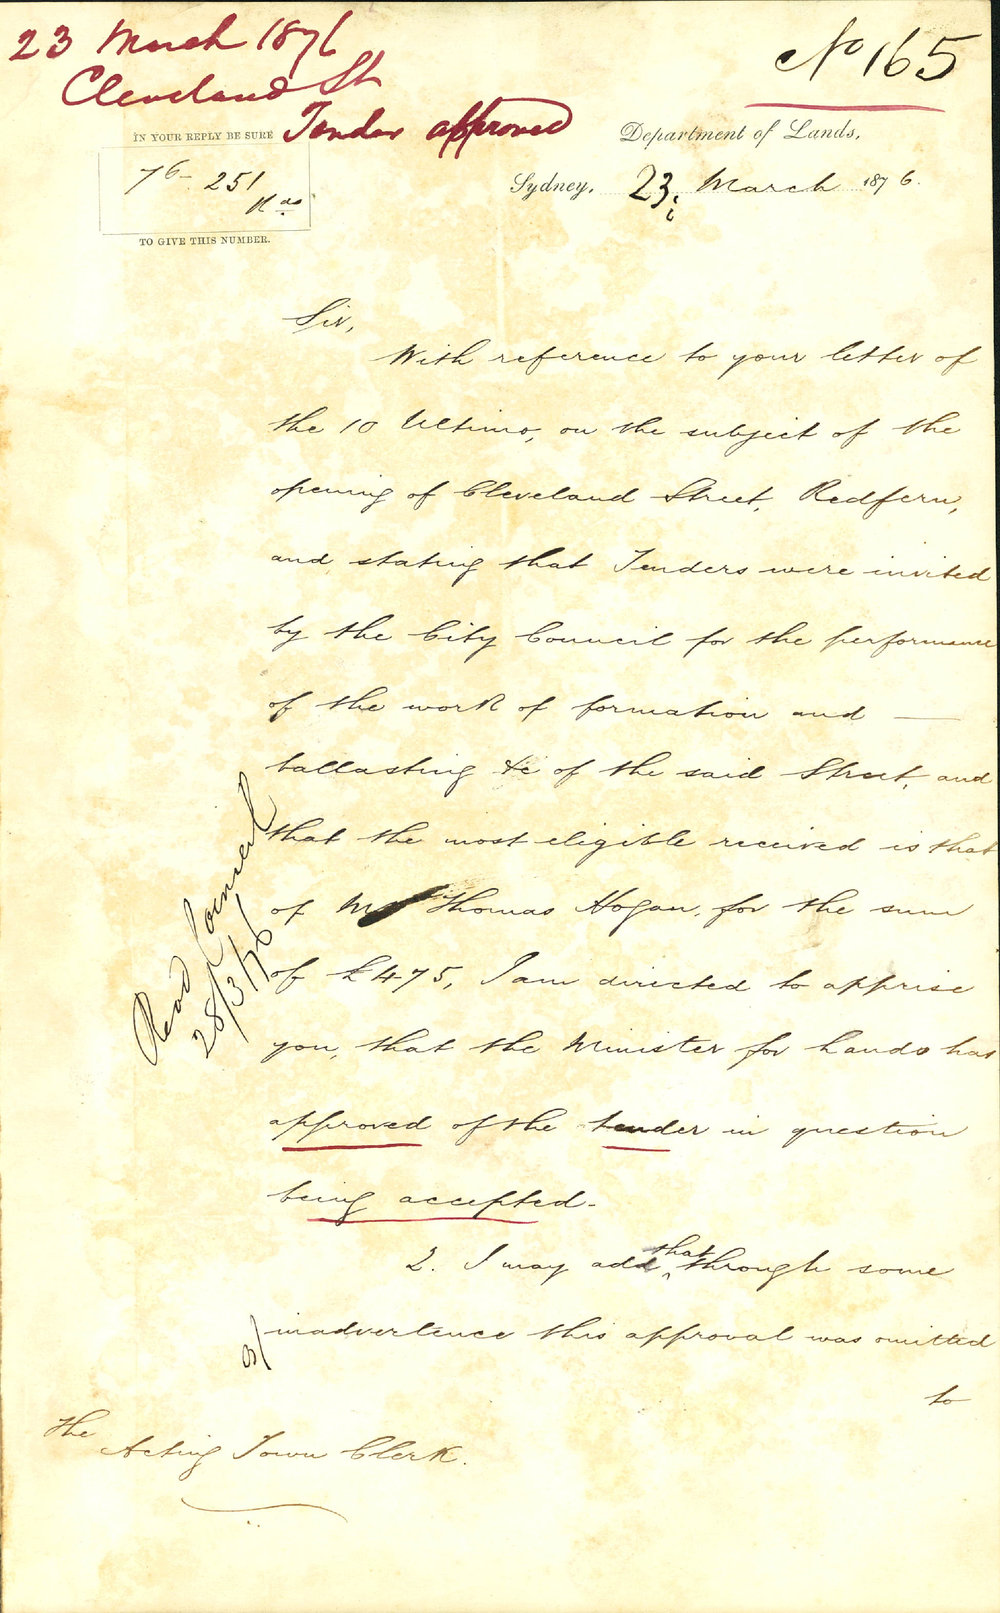 23 March 1876
Cleveland St
Tender approved
No 165
IN YOUR REPLY BE SURE
76-251
Rds
TO GIVE THIS NUMBER.
Department of Lands,
Sydney, 23, March 1876.
Sir,
With reference to your letter of
the 10 Ultimo, on the subject of the
opening of Cleveland Street, Redfern,
and stating that Tenders were invited
by the City Council for the performance
of the work of formation and —
ballasting &c of the said Street, and
that the most eligible received is that
of Mr Thomas Hogan, for the sum
of £475, I am directed to apprise
you, that the Minister for Lands has
approved of the tender in question
being accepted.
2. I may add that through some
inadvertence this approval was omitted
to
Read Council
28/3/76
The
Acting Town Clerk.